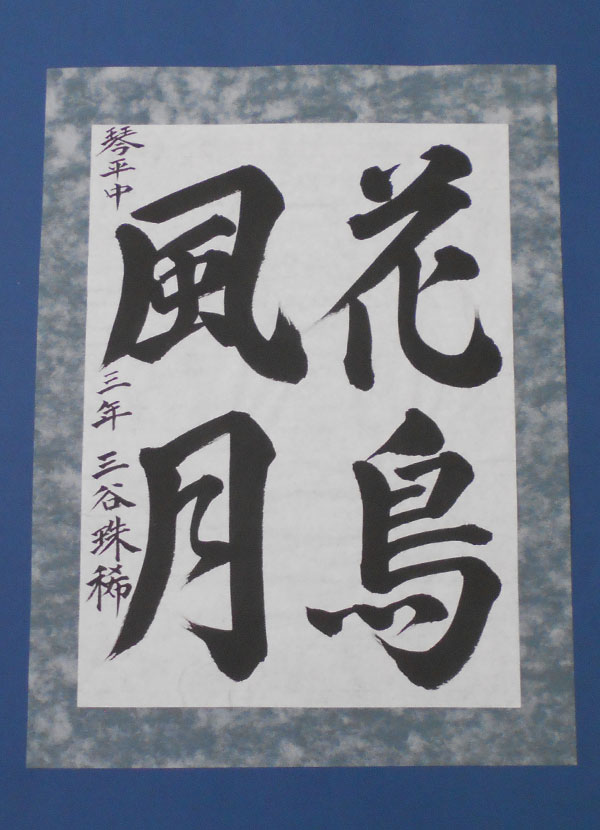 花鳥
風月
琴平中 三年 三谷珠稀